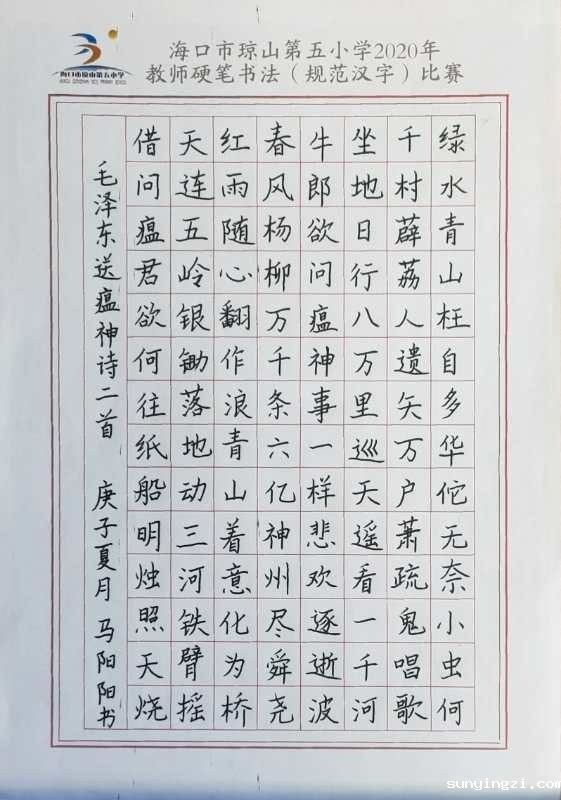 海口市琼山第五小学
海口市琼山第五小学2020年
教师硬笔书法（规范汉字）比赛
绿水青山枉自多华佗无奈小虫何
千村薜荔人遗矢万户萧疏鬼唱歌
坐地日行八万里巡天遥看一千河
牛郎欲问瘟神事一样悲欢逐逝波
春风杨柳万千条六亿神州尽舜尧
红雨随心翻作浪青山着意化为桥
天连五岭银锄落地动三河铁臂摇
借问瘟君欲何往纸船明烛照天烧
毛泽东送瘟神诗二首 庚子夏月 马阳阳书
sunyingzi.com